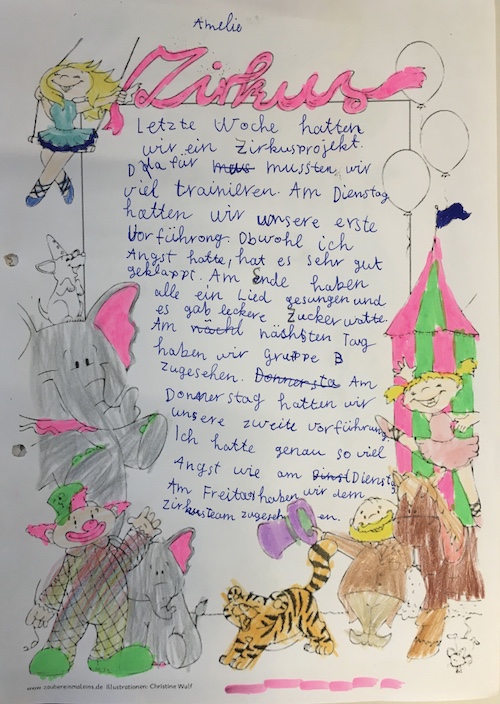 Amelie
Zirkus
Letzte Woche hatten
wir ein Zirkusprojekt.
Dafür mussten wir
viel trainieren. Am Dienstag
hatten wir unsere erste
Vorführung. Obwohl ich
Angst hatte, hat es sehr gut
geklappt. Am Ende haben
alle ein Lied gesungen und
es gab leckere Zuckerwatte.
Am nächsten Tag
haben wir gruppe B
zugesehen. Donnersta Am
Donnerstag hatten wir
unsere zweite Vorführung.
Ich hatte genau so viel
Angst wie am Dienstag.
Am Freitag haben wir dem
Zirkusteam zugesehen.
www.zaubereinmaleins.de Illustrationen: Christine Wulf